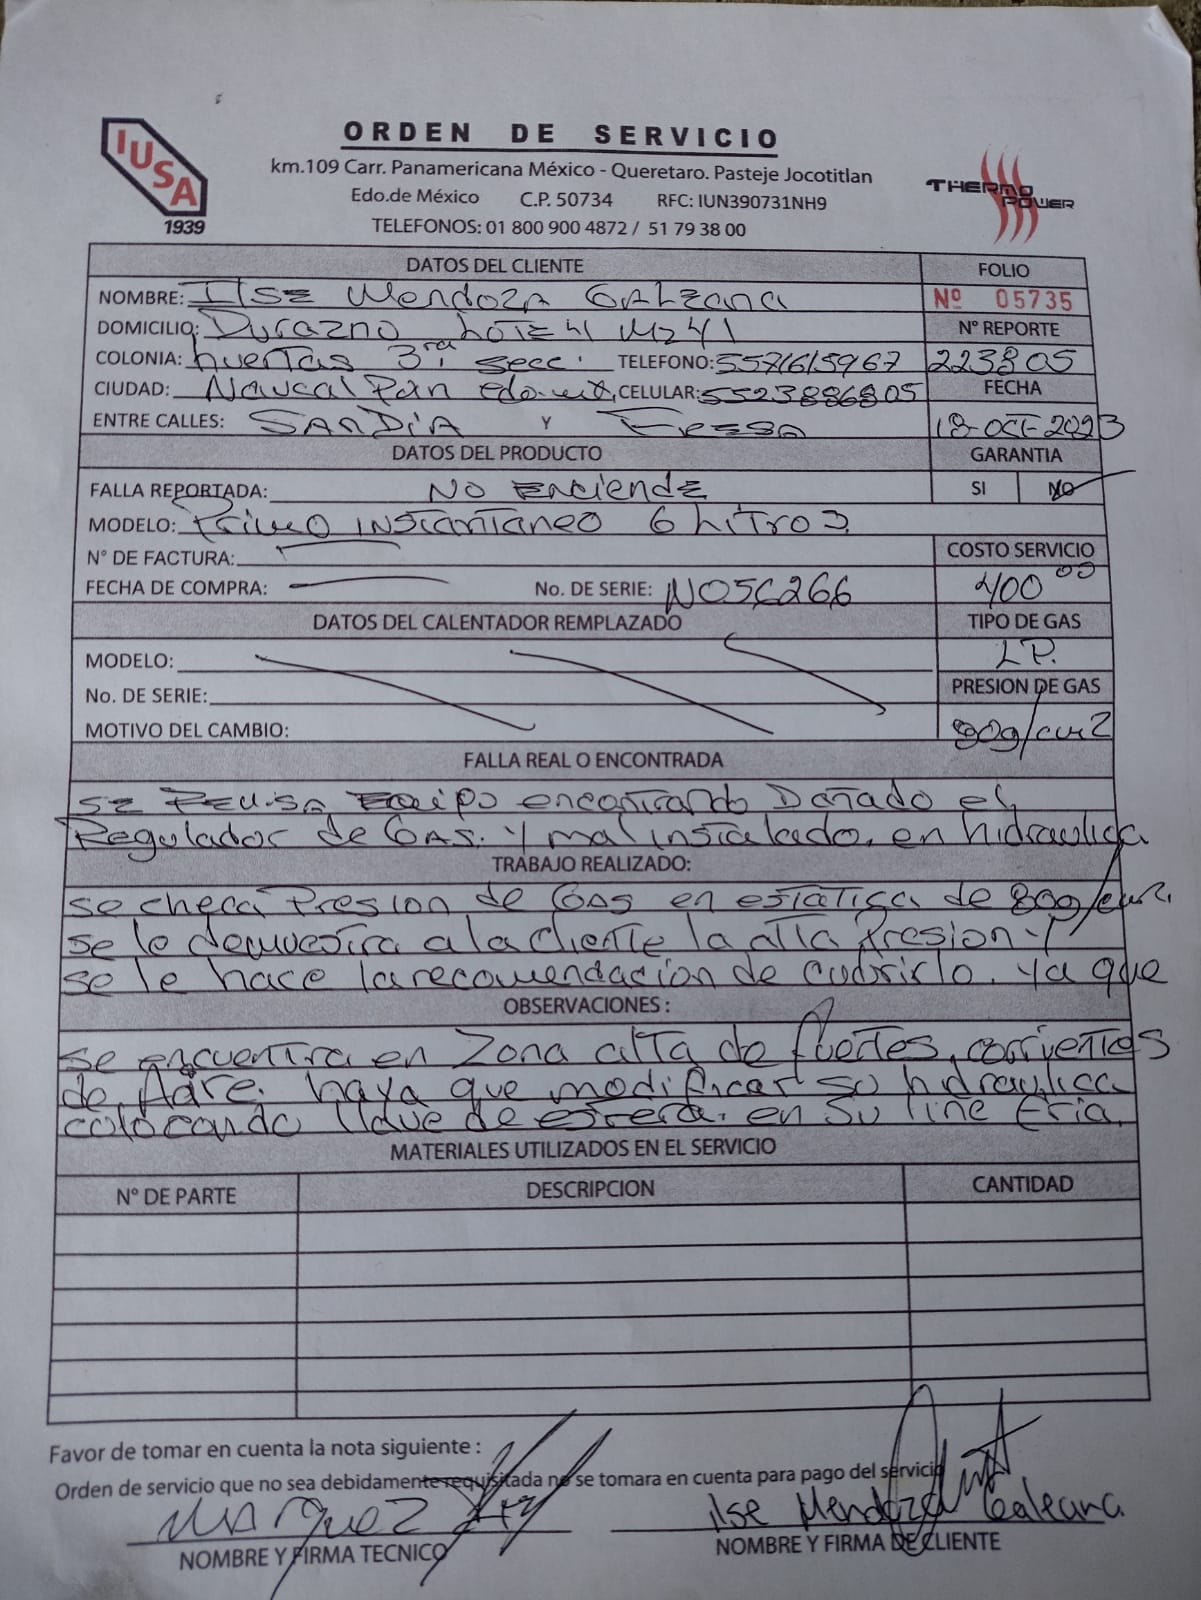 IUSA
1939
ORDEN DE SERVICIO
km.109 Carr. Panamericana México - Queretaro. Pasteje Jocotitlan
Edo.de México C.P. 50734 RFC: IUN390731NH9
TELEFONOS: 01 800 900 4872 / 51 79 38 00
THERMO
POWER
DATOS DEL CLIENTE
FOLIO
NOMBRE: IlSE Mendoza GALEana
Nº 05735
DOMICILIO: Durazno LoTE 41 Mz 41
N° REPORTE
COLONIA: huertas 3ra. secc. TELEFONO: 5576615967
223805
CIUDAD: Naucalpan edo. mex. CELULAR: 5523886805
FECHA
ENTRE CALLES: SANDíA Y FresA
18-OCT-2023
DATOS DEL PRODUCTO
GARANTIA
FALLA REPORTADA: NO Enciende
SI NO
MODELO: Primo INSTanTaneo 6 LiTros
N° DE FACTURA:
COSTO SERVICIO
FECHA DE COMPRA: No. DE SERIE: NO5C266
400 00
DATOS DEL CALENTADOR REMPLAZADO
TIPO DE GAS
MODELO:
L.P.
No. DE SERIE:
PRESION DE GAS
MOTIVO DEL CAMBIO:
80g/cm2
FALLA REAL O ENCONTRADA
se Revisa Equipo encontrando Dañado el
Regulador de Gas. y mal instalado. en hidraulica
TRABAJO REALIZADO:
se checa Presion de Gas en estatica de 80g/cm2.
se le demuestra a la cliente la alta Presion y
se le hace la recomendacion de cubrirlo. ya que
OBSERVACIONES:
se encuentra en Zona alta de fuertes corrientes
de Aire. haya que modificar su hidraulica
colocando llave de esfera. en su line Fria.
MATERIALES UTILIZADOS EN EL SERVICIO
N° DE PARTE DESCRIPCION CANTIDAD
Favor de tomar en cuenta la nota siguiente :
Orden de servicio que no sea debidamente requisitada no se tomara en cuenta para pago del servicio
MARQUEZ
Ilse Mendoza Galeana
NOMBRE Y FIRMA TECNICO
NOMBRE Y FIRMA DE CLIENTE